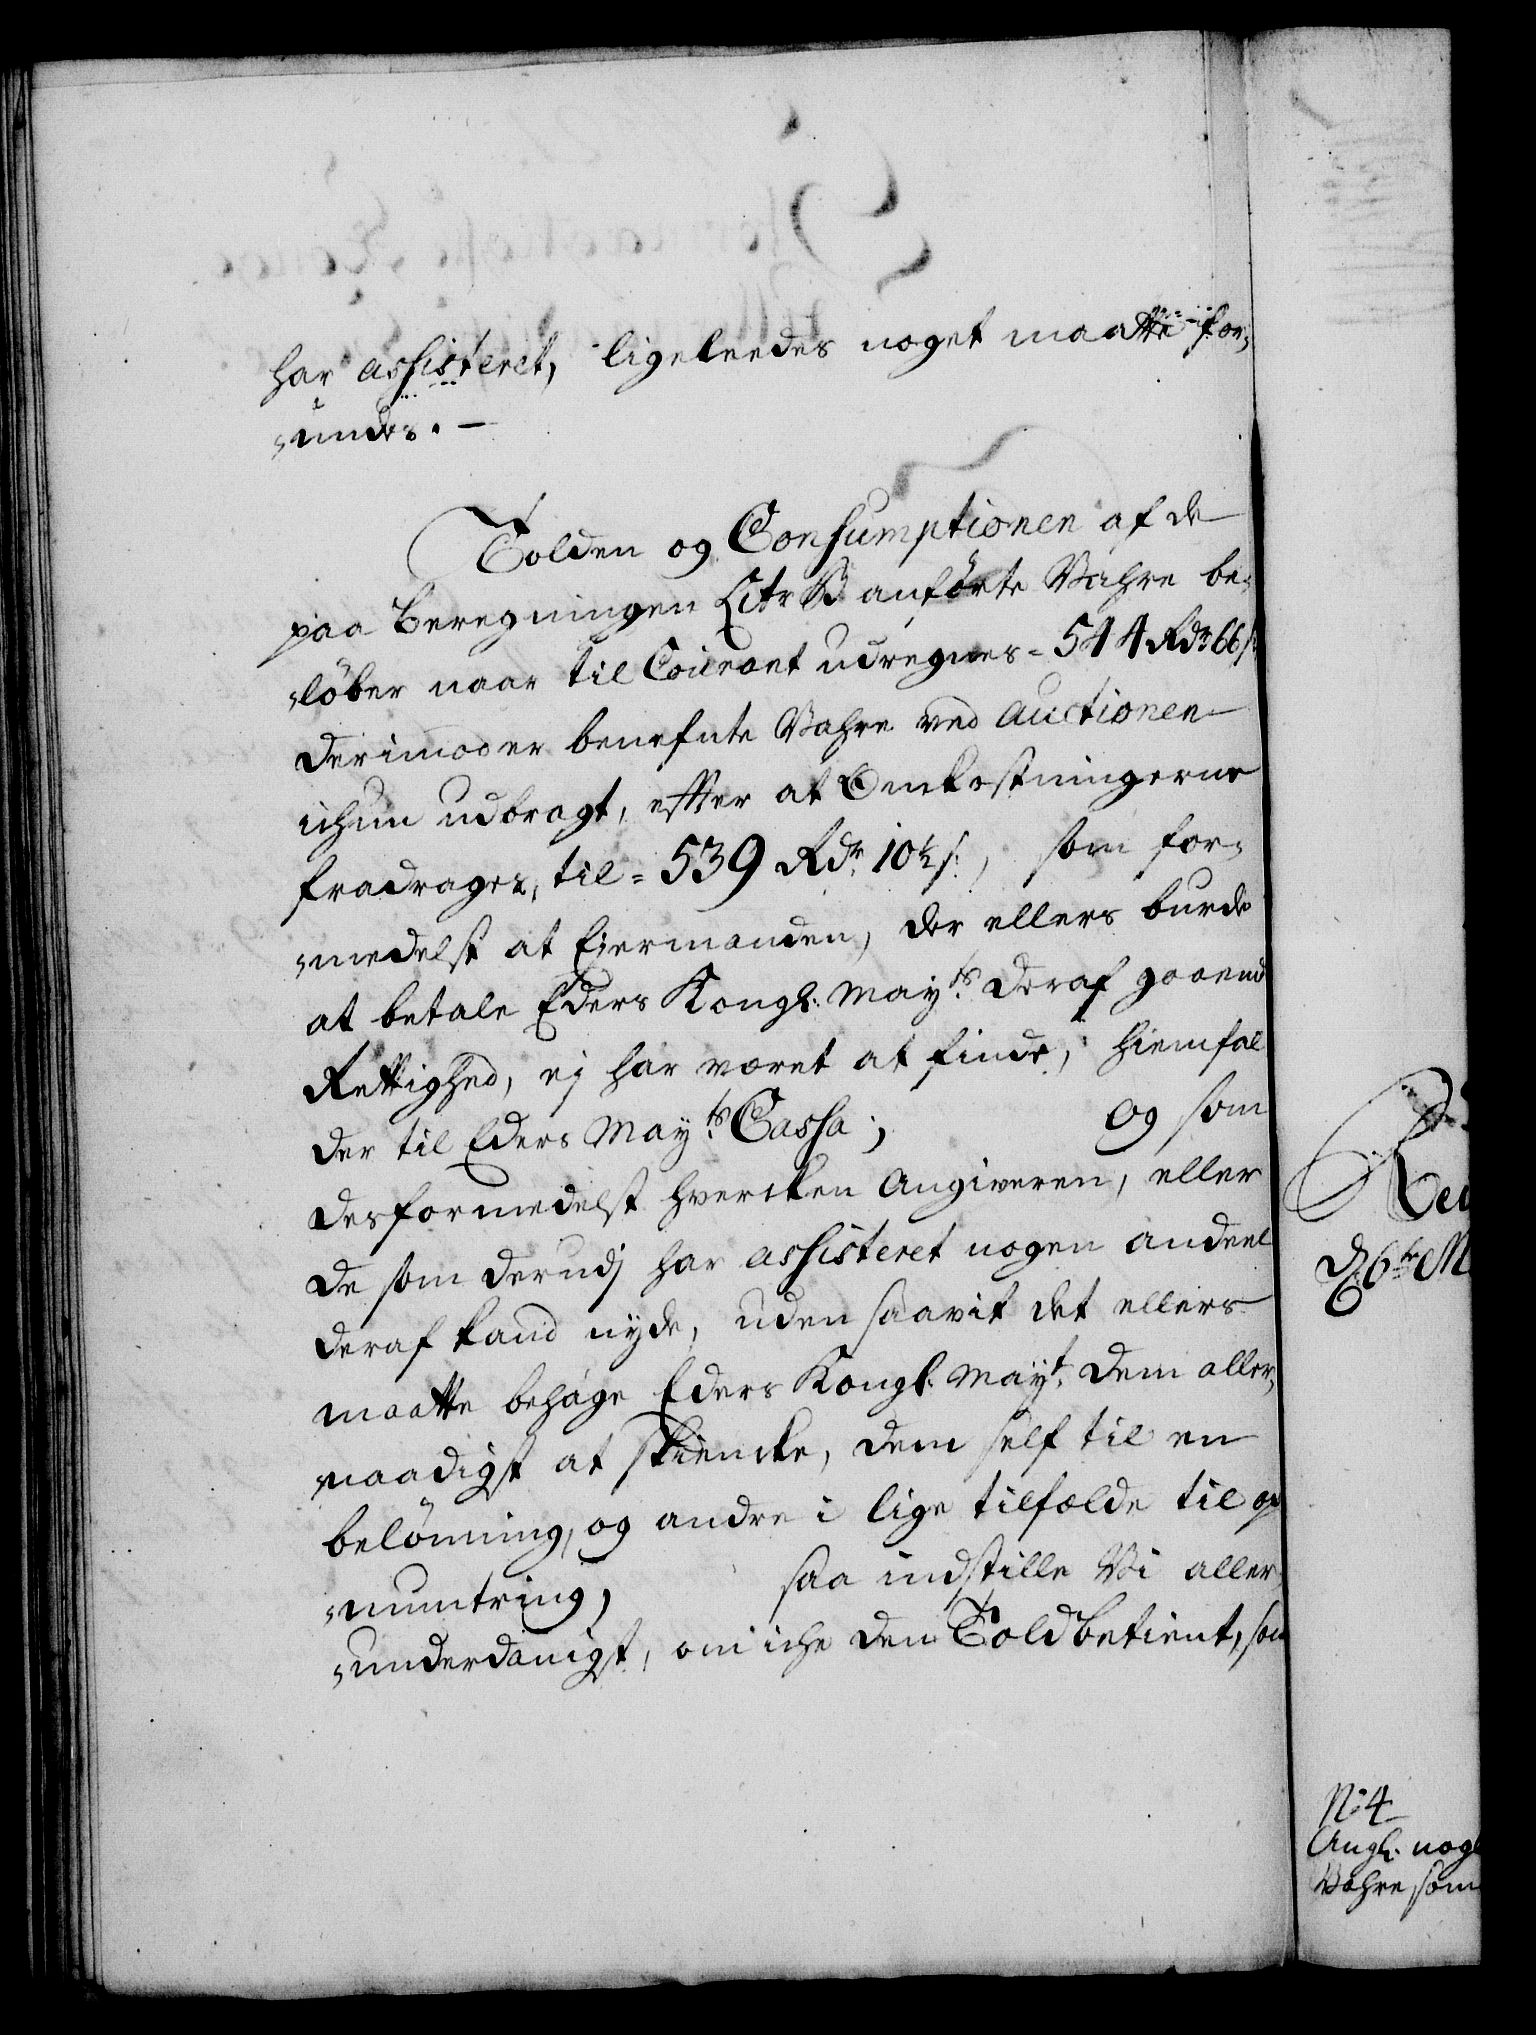 har assisteret, ligeleedes noget maatte for„
„undes. —
Tolden og Consumptionen af de
paa Beregningen Litr B anførte Vahre be„
„løber naar til Courant udregnes = 544 Rdr 66 s:
derimod er benefnte Vahre ved Auctionen
ichun udbragt, efter at Omkostningerne
fradrages, til = 539 Rdr 10½ s:, som for„
„medelst at Eiermanden, der ellers burde
at betale Eders Kongl: Mayts deraf gaaende
Rettighed, ej har været at finde, hiemfal
der til Eders Mayts Cassa; og som
desformedelst hvercken Angiveren, eller
de som derudj har assisteret nogen andeel
deraf kand nyde, uden saavit det ellers
maatte behage Eders Kongl: Mayt: dem aller„
„naadigst at skiencke, dem self til en
belønning, og andre i lige tilfælde til op
„muntring, saa indstille Vi aller„
„underdanigst, om iche den Toldbetient, som
D: 6te M
No: 4
Angl: nog
Vahre som